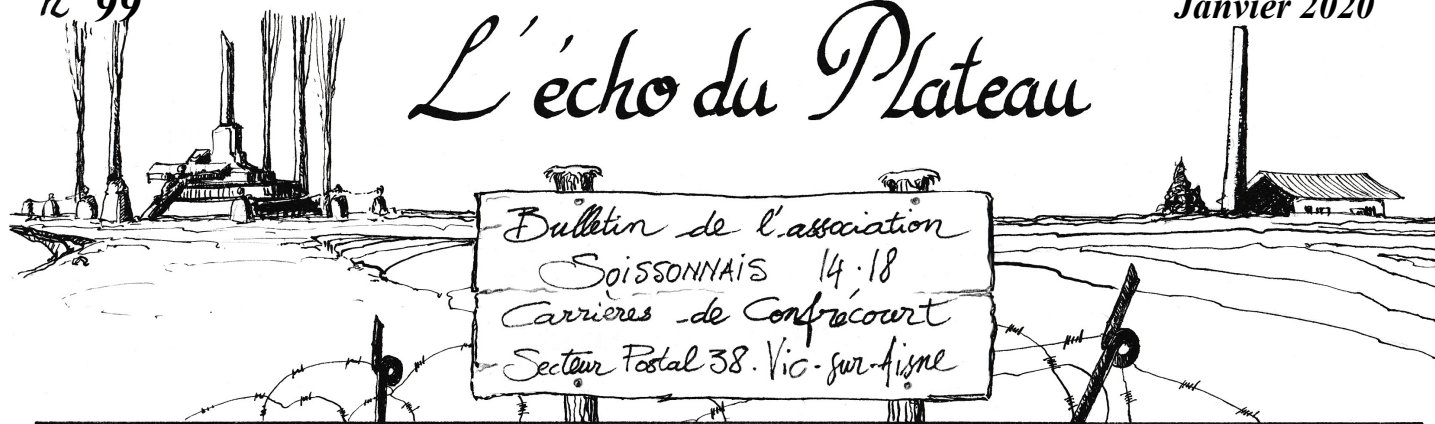 n° 99
Janvier 2020
L'écho du Plateau
Bulletin de l'association
SOISSONNAIS 14.18
Carrières de Confrécourt
Secteur Postal 38. Vic-sur-Aisne